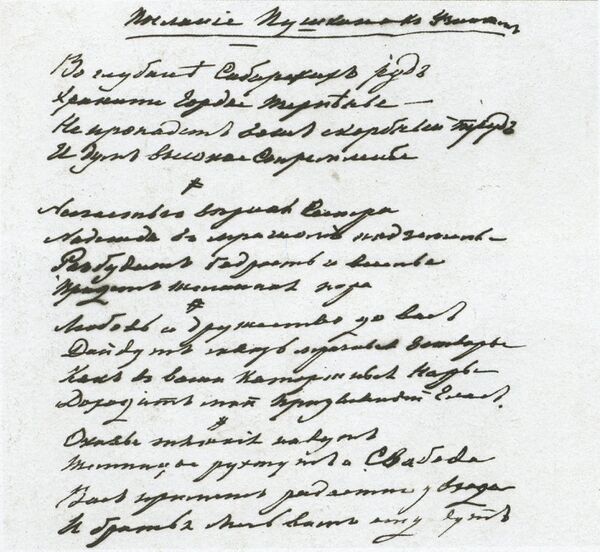 Посланіе Пушкина къ
Во глубинѣ Сибирскихъ рудъ
Храните гордое терпѣнье —
Не пропадетъ вашъ скорбный трудъ
И думъ высокое стремленье
Несчастью вѣрная сестра
Надежда въ мрачномъ подземельѣ
Разбудитъ бодрость и веселье
Придетъ желанная пора
Любовь и дружество до васъ
Дойдутъ сквозь мрачные затворы
Какъ въ ваши каторжныя норы
Доходитъ мой гласъ.
Оковы тяжкія падутъ
Темницы рухнутъ и Свобода
Васъ приметъ радостно у входа
И братья мечъ вамъ отдадутъ